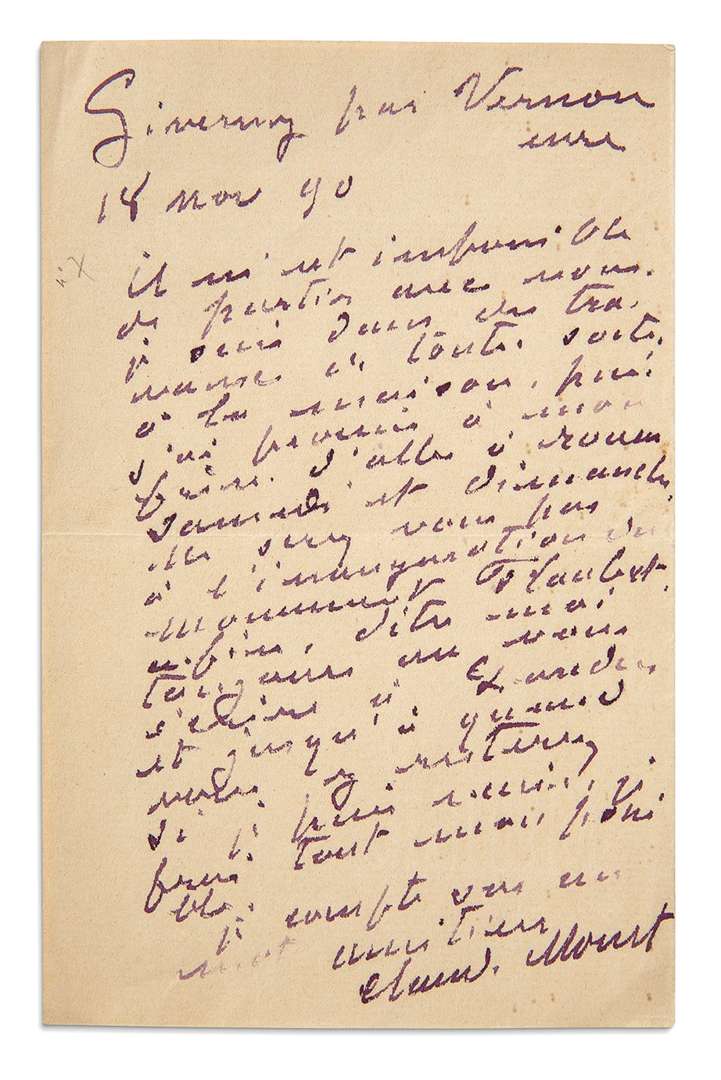 Giverny par Vernon
eure
18 nov 90
il m'est impossible
de partir avec vous.
je suis dans des tra.
vaux de toute sorte
à la maison, puis
j'ai promis à mon
frère d'aller à rouen
samedi et dimanche
ne serez vous pas
à l'inauguration du
monument Flaubert.
dites moi
toujours ou vous
écrire à Londres
et jusqu'à quand
vous y resterez
si je puis venir, je
ferai tout mon possi
ble.
je compte sur un
mot amitiés
Claude Monet